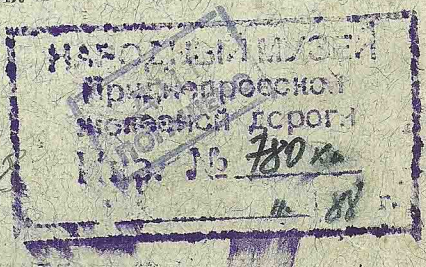 НАРОДНЫЙ МУЗЕЙ
Приднепровской
железной дороги
Инв. № 780 кн
" 88 г.